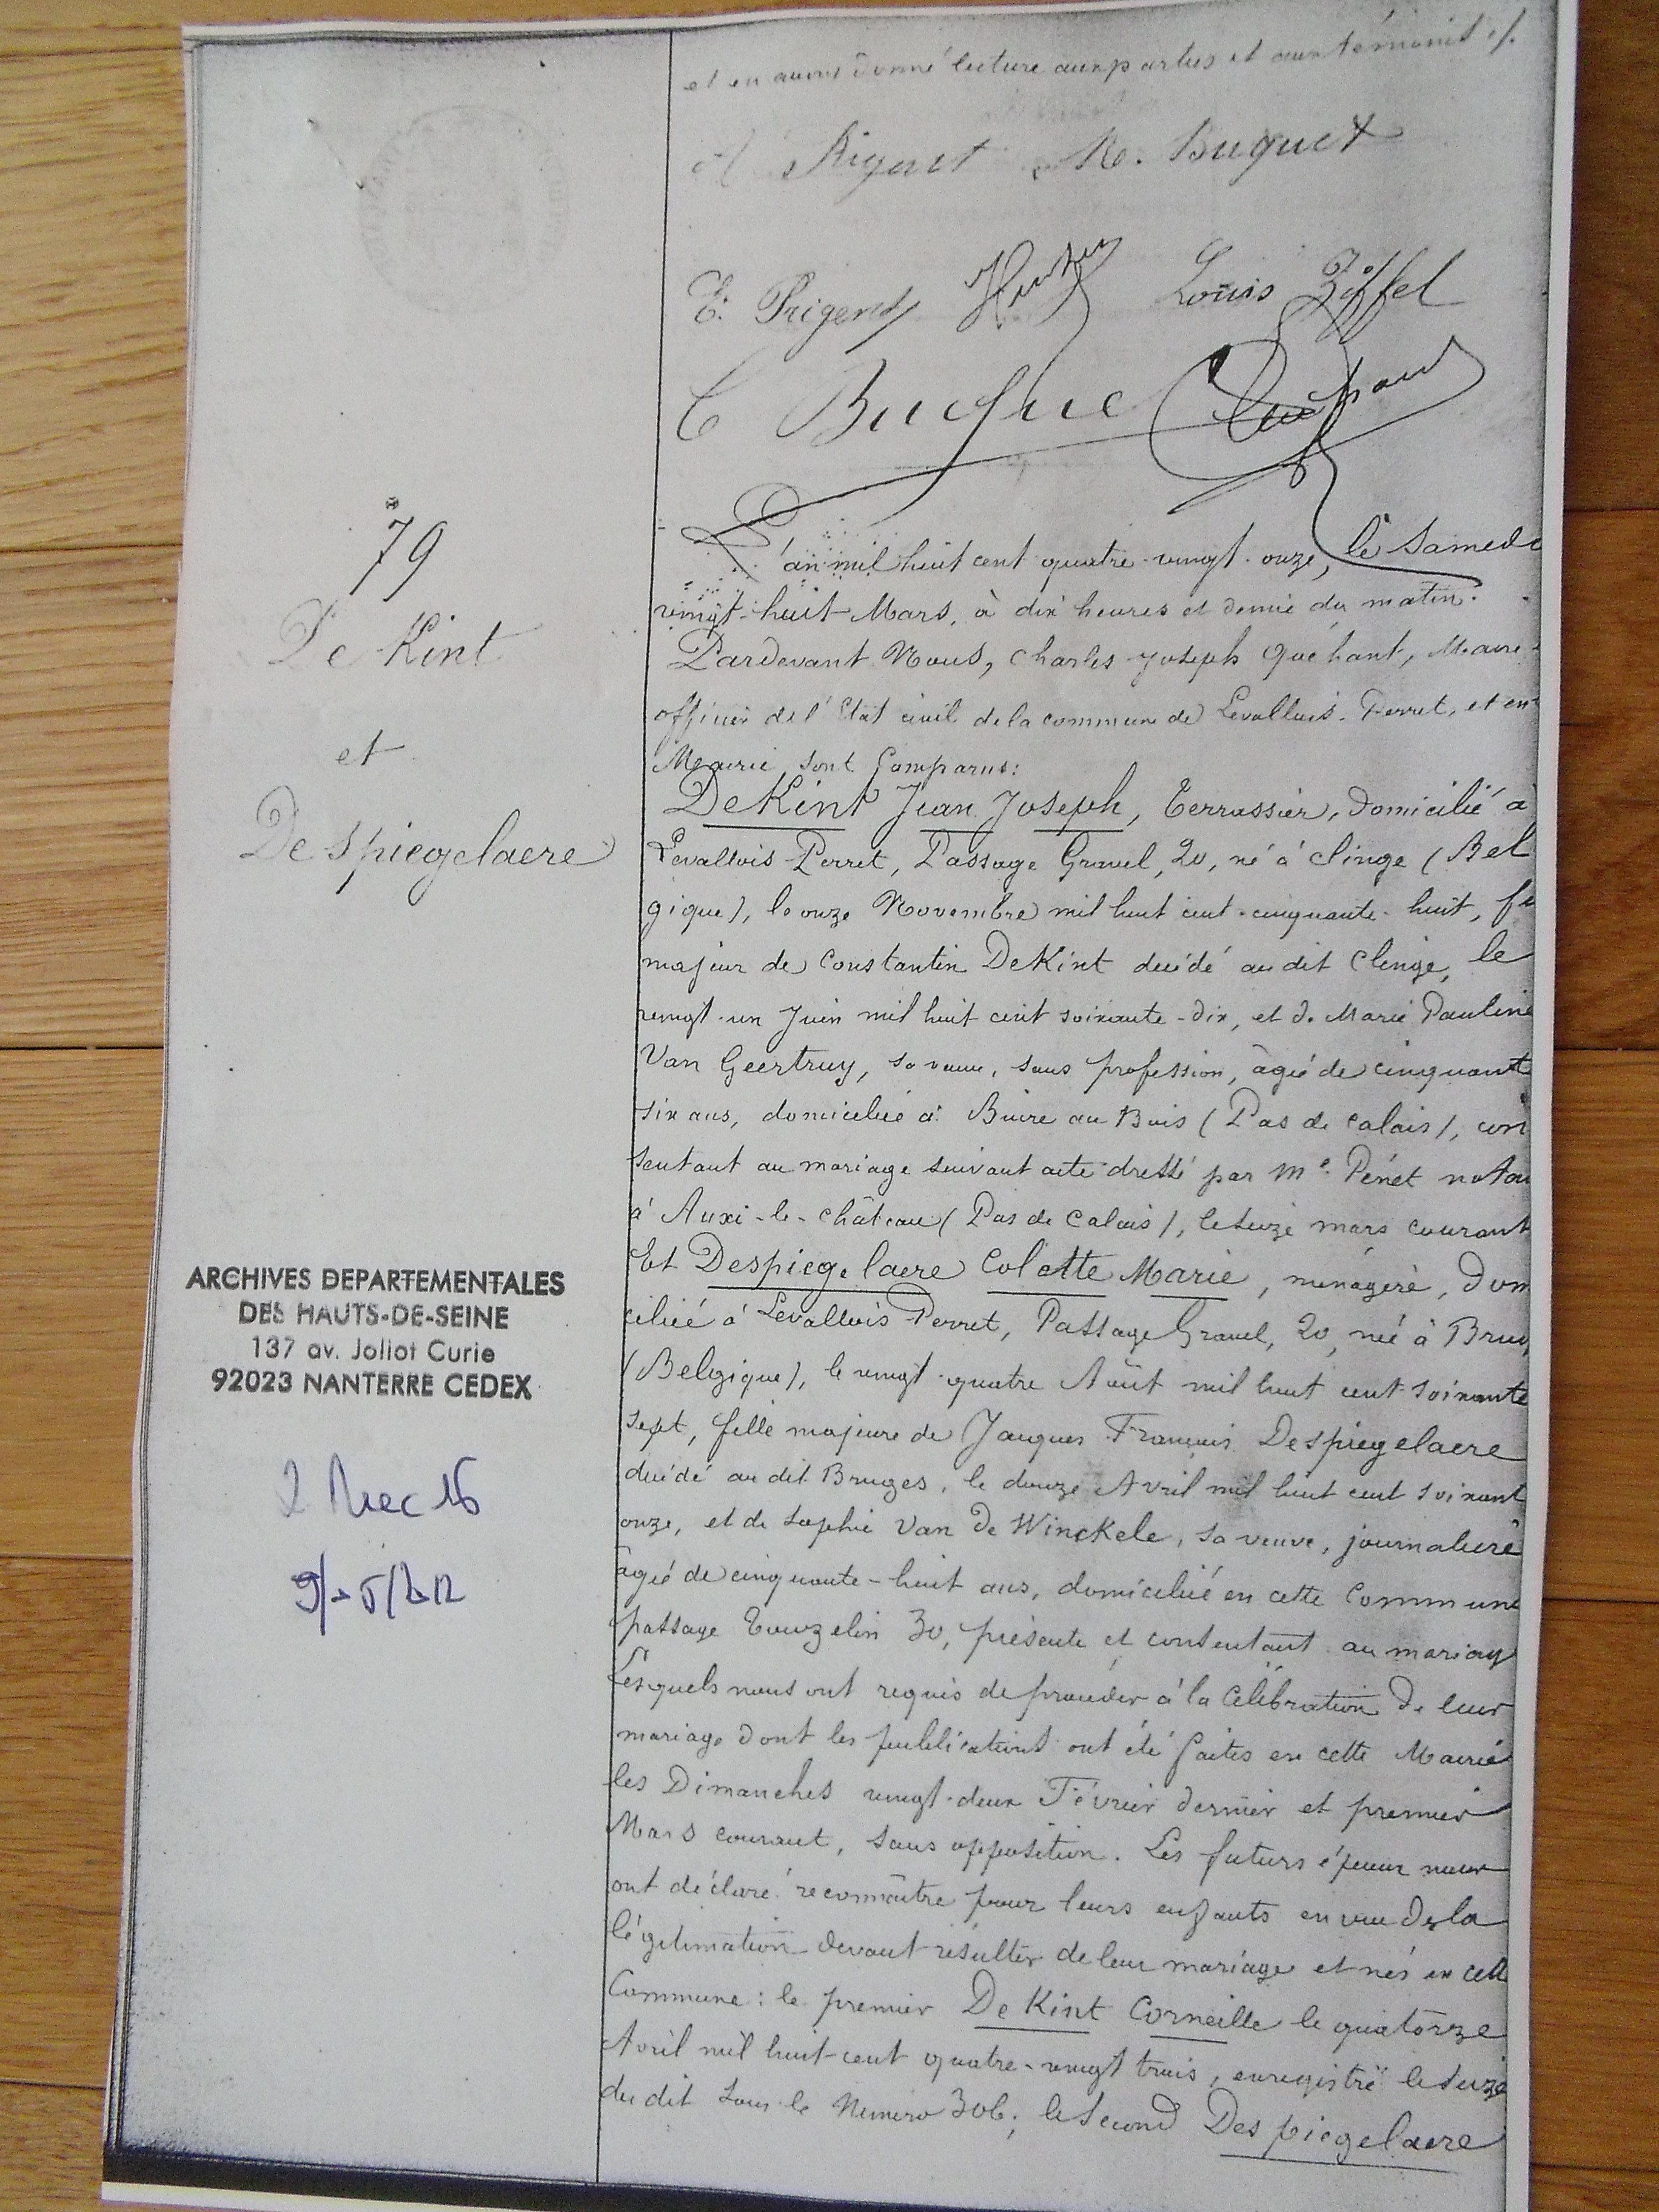 et en avons donné lecture aux parties et aux témoins ./.
R. Buquet
E. Prigent Louis Ziffel
C Buquet
79
De Kint
et
De Spiegelaere
L'an mil huit cent quatre-vingt-onze, le Samedi
vingt-huit Mars, à dix heures et demie du matin.
Pardevant Nous, Charles Joseph Quéhant, Maire
officier de l'Etat civil de la commune de Levallois-Perret, et en
Mairie sont Comparus:
DeKint Jean Joseph, Terrassier, domicilié à
Levallois-Perret, Passage Gravel, 20, né à Clinge (Bel
gique), le onze Novembre mil huit cent cinquante-huit, fi
majeur de Constantin DeKint décédé au dit Clinge, le
vingt-un Juin mil huit cent soixante-dix, et de Marie Pauline
Van Geertruy, sa veuve, sans profession, âgée de cinquant
six ans, domiciliée à Buire au Bois (Pas de Calais), con
sentant au mariage suivant acte dressé par Me Pénet notai
à Auxi-le-Château (Pas de Calais), le seize mars courant
Et Despiegelaere Colette Marie, ménagère, dom
ciliée à Levallois Perret, Passage Gravel, 20, née à Bru
(Belgique), le vingt-quatre Août mil huit cent soixante
sept, fille majeure de Jacques François Despiegelaere
décédé au dit Bruges, le douze Avril mil huit cent soixant
onze, et de Sophie Van de Winckele, sa veuve, journalière
âgée de cinquante-huit ans, domiciliée en cette Commune
passage Touzelin 30, présente et consentant au mariag
Lesquels nous ont requis de procéder à la Célébration de leur
mariage dont les publications ont été faites en cette Mairie
les Dimanches vingt-deux Février dernier et premier
Mars courant, sans opposition. Les futurs époux nous
ont déclaré reconnaître pour leurs enfants en vue de la
légitimation devant résulter de leur mariage et nés en cette
Commune: le premier De Kint Corneille le quatorze
Avril mil huit-cent quatre-vingt trois, enregistré le seize
du dit sous le Numéro 306; le Second Despiegelaere
ARCHIVES DEPARTEMENTALES
DES HAUTS-DE-SEINE
137 av. Joliot Curie
92023 NANTERRE CEDEX